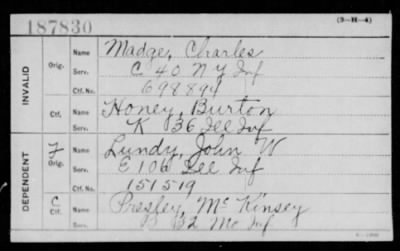 187830
(3-H-4)
INVALID
Orig.
Name Madge, Charles
Serv. C 40 N Y Inf
Ctf. No. 698894
Ctf.
Name Honey, Burton
Serv. K 36 Ill Inf
DEPENDENT
F
Orig.
Name Lundy, John W
Serv. E 106 Ill Inf
Ctf. No. 151519
C
Ctf.
Name Presley, McKinsey
Serv. 32 Mo Inf